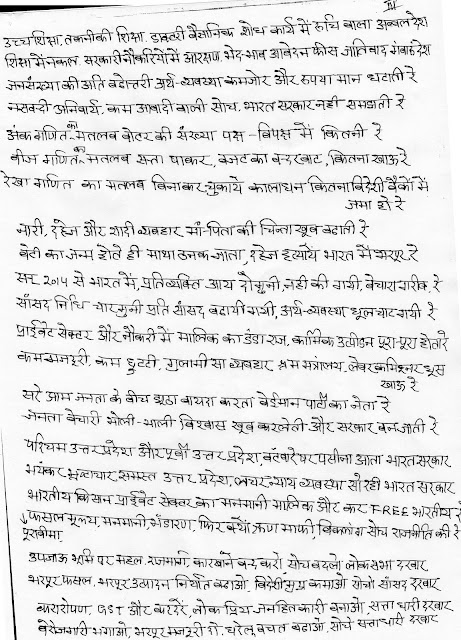 III
उच्चशिक्षा, तकनीकी शिक्षा, डाक्टरी वैज्ञानिक शोध कार्य में रुचि वाला अव्वल देश
शिक्षा में नकल, सरकारी नौकरियों में आरक्षण, भेद-भाव आवेदन फीस जातिवाद गंवार देश
जनसंख्या की अति बढोत्तरी अर्थ-व्यवस्था कमजोर और रुपया मान घटाती रे
नसबन्दी अनिवार्य, कम आबादी वाली सोच, भारत सरकार नहीं समझती रे
अंकगणित का मतलब वोटर की संख्या पक्ष-विपक्ष में कितनी रे
बीज गणित का मतलब सत्ता पाकर, बजट का बन्दरबाट, कितना खाऊ रे
रेखा गणित का मतलब बिना कर चुकाये कालाधन कितना विदेशी बैंकों में
जमा हो रे
नारी, दहेज और शादी व्यवहार माँ-पिता की चिन्ता खूब बढाती रे
बेटी का जन्म होते ही माथा ठनक जाता, दहेज हत्यायें भारत में भरपूर रे
सन् 2014 से भारत में, प्रतिव्यक्ति आय दौगुनी, नहीं की गयी, बेचारा गरीब रे
साँसद निधि चार गुनी प्रति साँसद बढायी गयी, अर्थ-व्यवस्था धूल चाट गयी रे
प्राईवेट सेक्टर और नौकरी में मालिक का डंडा राज, कार्मिक उत्पीडन पूरा-पूरा होता रे
कम मजदूरी, कम छुट्टी, गुलामी सा व्यवहार श्रम मंत्रालय, लेबर कमिश्नर घूस
खाऊ रे
सरे आम जनता के बीच झूठा वायदा करता बेईमान पार्टी का नेता रे
जनता बेचारी भोली-भाली विश्वास खूब करलेती और सरकार बन जाती रे
पश्चिम उत्तर प्रदेश और पूर्वी उत्तर प्रदेश, बंटवारे पर पसीना आता भारत सरकार
भयंकर भ्रष्टाचार, समस्त उत्तर प्रदेश, लचर न्याय व्यवस्था सो रही भारत सरकार
भारतीय किसान प्राईवेट सेक्टर का मनमानी मालिक और कर FREE भारतीय रे
फसल मूल्य, मनमानी, भंडारण, फिर क्यों ऋण माफी, विकलांग सोच राजनीति की रे
पूरा बीमा
उपजाऊ भूमि पर महल, राजमार्ग, कारखाने बन्द करो, सोच बदलो लोकसभा दरबार
भरपूर फसल, भरपूर उत्पादन निर्यात बढाओ, विदेशी मुद्रा कमाओ सोचो साँसद दरबार
करारोपण, GST और कर दरें, लोक प्रिय जनहितकारी बनाओ, सत्ताधारी दरबार
बेरोजगारी भगाओ, भरपूर मजदूरी दो, घरेलू बचत बढाओ, सोचे सत्ताधारी दरबार